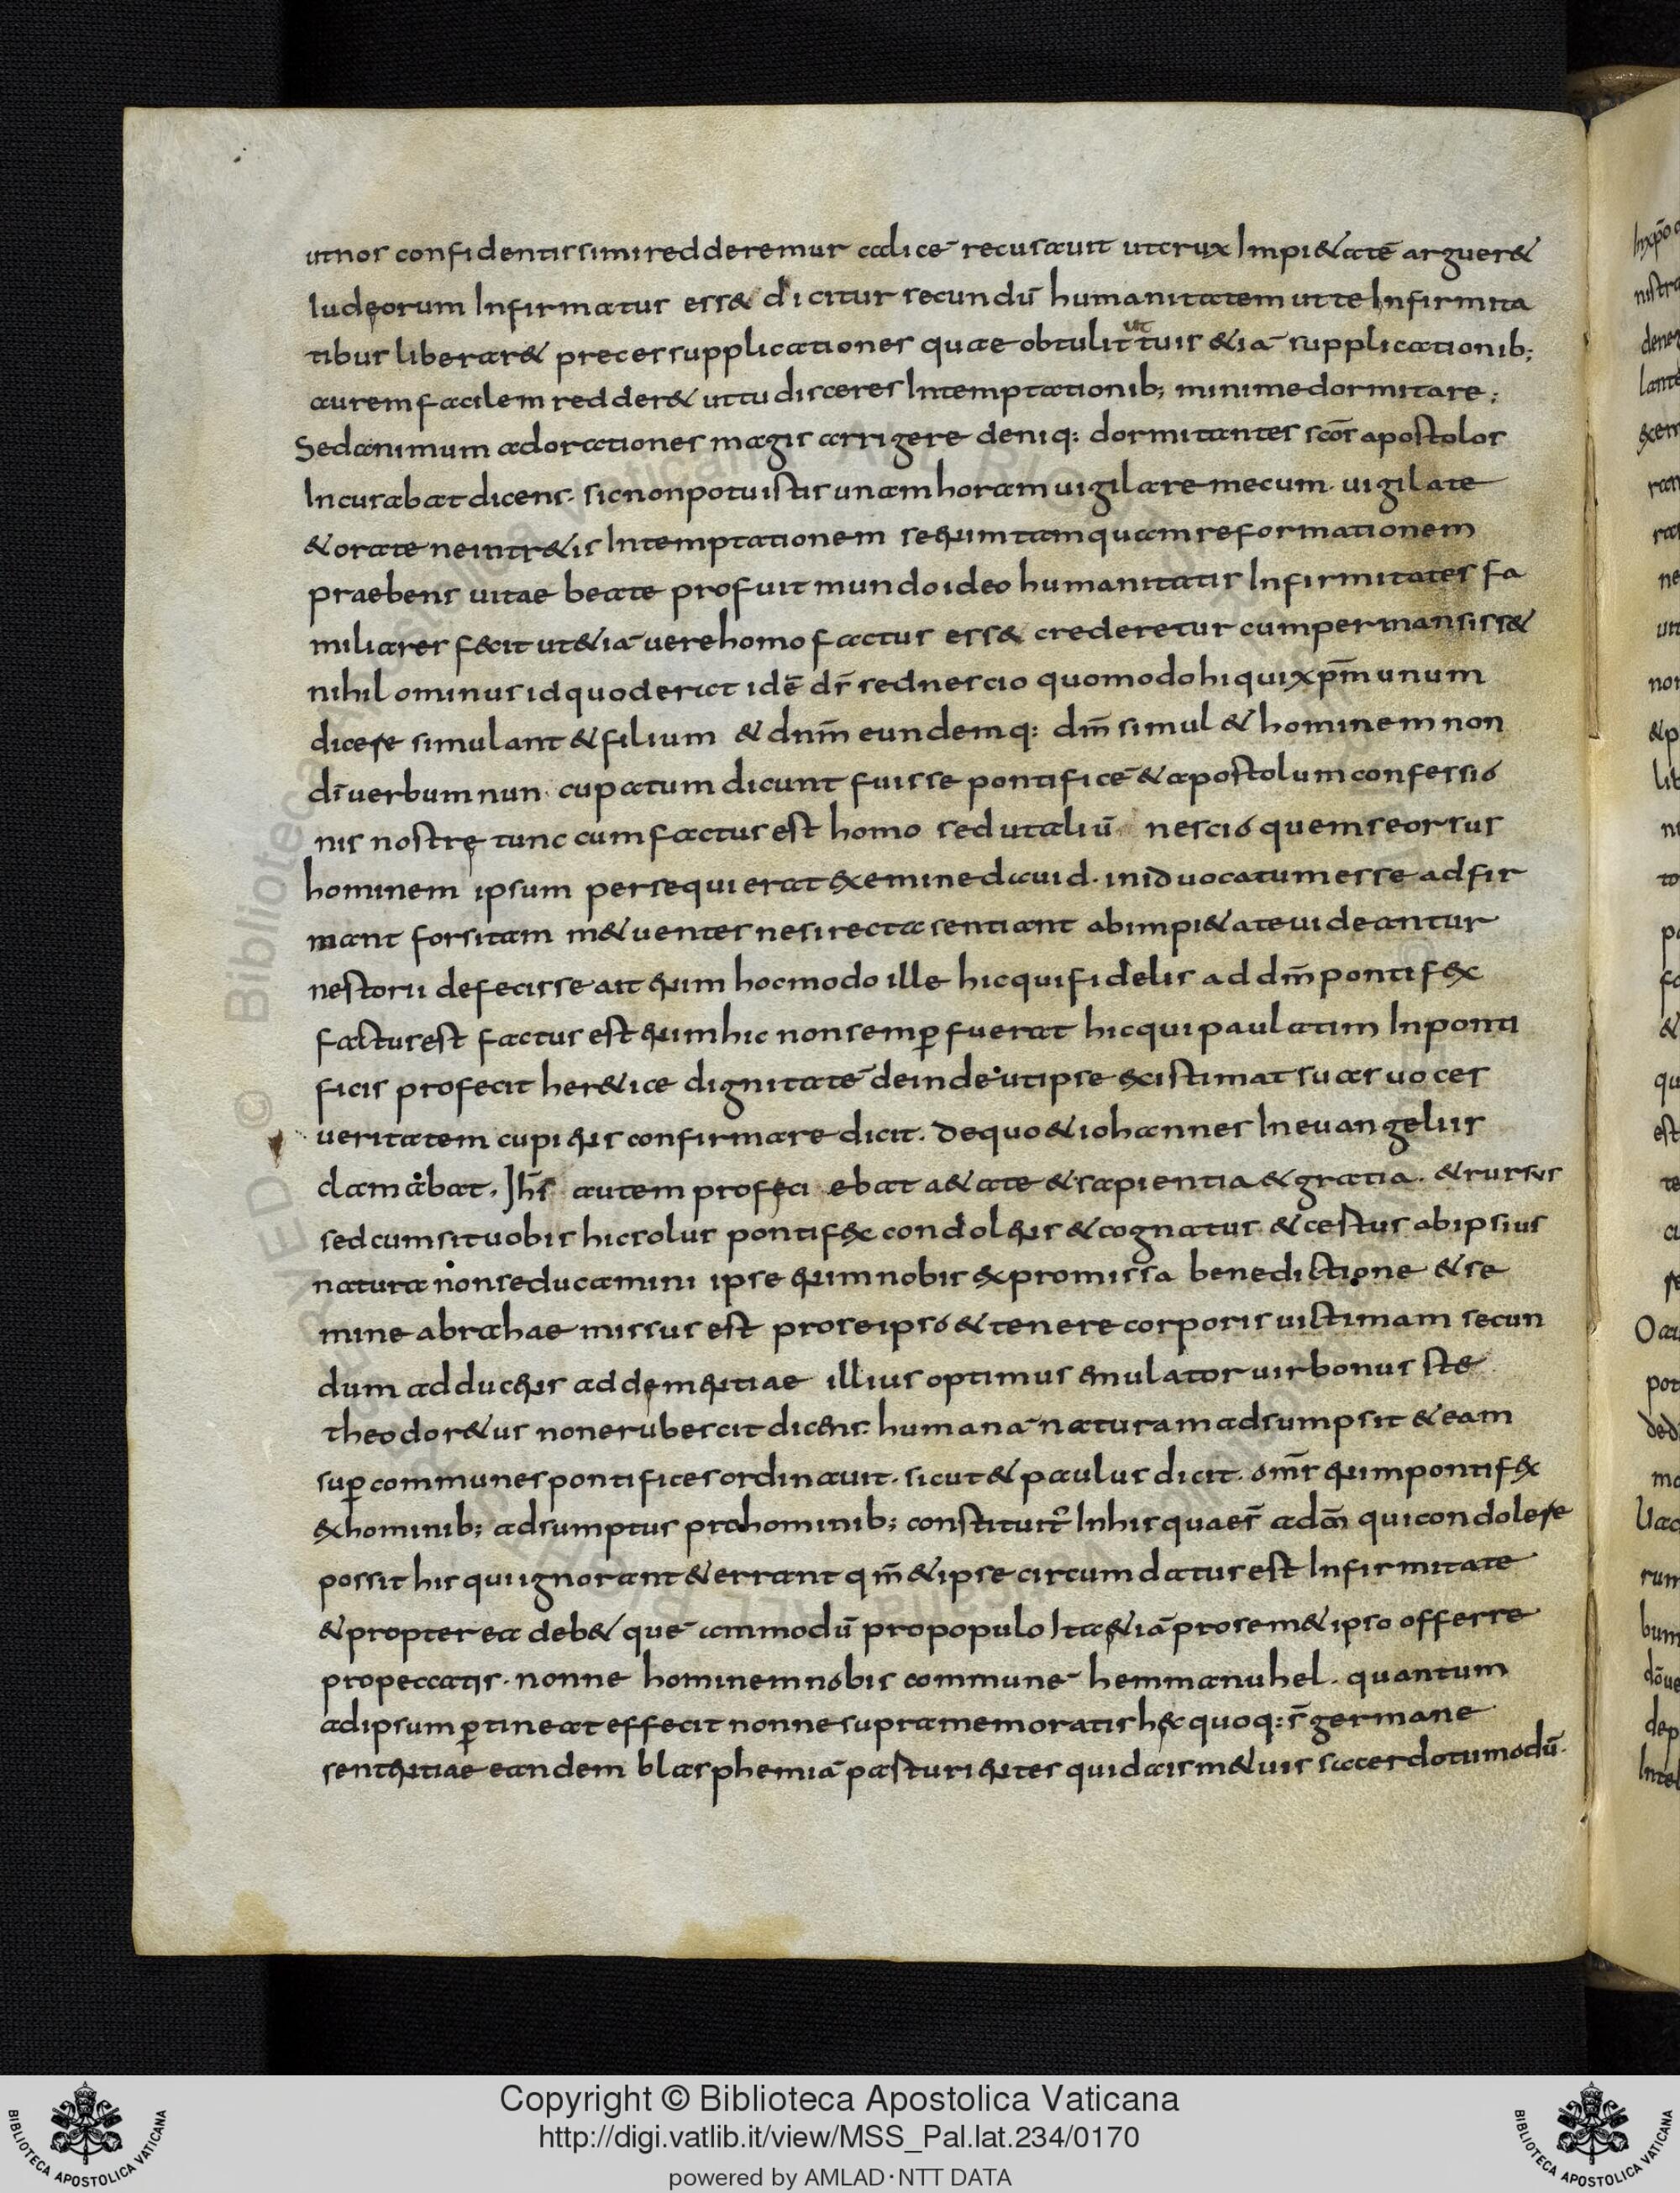 utnos confidentissimi redderemur calicē recusauit utcrux Impi&atē arguer&
Iudęorum Infirmatus ess& dicitur secundū humanitatem ut te Infirmita
tibus liberar& preces supplicationes quae obtulit ut tuis &iā supplicationib;
aurem facilem redder& uttu disceres Intemptationib; minime dormitare;
Sed animum adorationes magis arrigere deniq: dormitantes scōs apostolos
Incurabat dicens· sic non potuistis unam horam uigilare mecum· uigilate
&orate neintr&is Intemptationem se enim tamquam reformationem
praebens uitae beate profuit mundo ideo humanitatis Infirmitates fa
miliares fecit ut&iā uere homo factus ess& crederetur cum permansiss&
nihilominus id quod erat idē dr̄ sed nescio quomodo hi qui xpm̄ unum
dicere simulant &filium & dnm̄ eundemq: dm̄ simul & hominem non
dī uerbum nun cupatum dicunt fuisse pontificē &apostolum confessio
nis nostrę tunc cum factus est homo sed ut aliū nescio quem seorsus
hominem ipsum per se qui erat ex emine dauid· in id uocatum esse adfir
mant forsitam m&uentes ne si recta sentiant ab impi&ate uideantur
nestorii defecisse ait enim hocmodo ille hic qui fidelis ad dm̄ pontifex
factus est factus est enim hic non semꝑ fuerat hic qui paulatim Inponti
ficis profecit her&ice dignitatē deinde ut ipse existimat suas uoces
ueritatem cupiens confirmare dicit· De quo & iohannes Ineuangeliis
clamabat· Ihs̄ autem profeci ebat a&ate &sapientia & gratia· & rursus
sed cum sit uobis hic solus pontifex condolens & cognatus & cestus ab ipsius
natura non seducamini ipse enim nobis ex promissa benedictione & se
mine abrahae missus est pro se ipso & tenere corporis uictimam secun
dum adducens ad dementiae illius optimus emulator uir bonus iste
theodor&us non erubescit dicens· humanā naturam adsumpsit &eam
suꝑ communes pontifices ordinauit· sicut & paulus dicit· om̄s enim pontifex
ex hominib; adsumptus pro hominib; constituitr̄ Inhis quaes̄ ad dm̄ qui condolere
possit his qui ignorant &errant qm̄ & ipse circumdatus est Infirmitate
&propterea deb& quē ammodū pro populo Ita &iā pro sem& ipso offerre
pro peccatis· nonne hominem nobis communē hemmanuhel· quantum
ad ipsum ꝑtineat effecit nonne supra memoratis hęc quoq: s̄ germane
sententiae eandem blasphemiā parturientes quid ais m&uis sacerdotum odū·
Copyright © Biblioteca Apostolica Vaticana
http://digi.vatlib.it/view/MSS_Pal.lat.234/0170
powered by AMLAD·NTT DATA
BIBLIOTECA APOSTOLICA VATICANA
BIBLIOTECA APOSTOLICA VATICANA